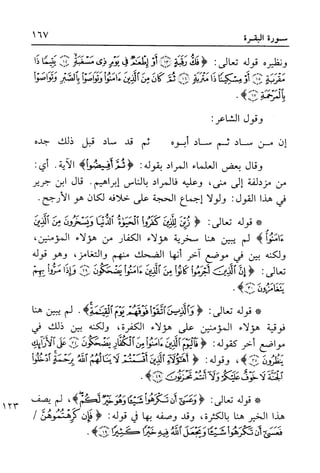 سورة البقرة ١٦٧
ونظيره قوله تعالى: ﴿فَكُّ رَقَبَةٍ ﴿١٣﴾ أَوْ إِطْعَمٌ فِي يَوْمٍ ذِي مَسْغَبَةٍ ﴿١٤﴾ يَتِيمًا ذَا
مَقْرَبَةٍ ﴿١٥﴾ أَوْ مِسْكِينًا ذَا مَتْرَبَةٍ ﴿١٦﴾ ثُمَّ كَانَ مِنَ الَّذِينَ ءَامَنُوا وَتَوَاصَوْا بِالصَّبْرِ وَتَوَاصَوْا
بِالْمَرْحَمَةِ ﴿١٧﴾﴾.
وقول الشاعر:
إن من ساد ثم ساد أبوه ثم قد ساد قبل ذلك جده
وقال بعض العلماء المراد بقوله: ﴿ثُمَّ أَفِيضُوا﴾ الآية. أي:
من مزدلفة إلى منى، وعليه فالمراد بالناس إبراهيم. قال ابن جرير
في هذا القول: ولولا إجماع الحجة على خلافه لكان هو الأرجح.
* قوله تعالى: ﴿زُيِّنَ لِلَّذِينَ كَفَرُوا الْحَيَوٰةُ الدُّنْيَا وَيَسْخَرُونَ مِنَ الَّذِينَ
ءَامَنُوا﴾ لم يبين هنا سخرية هؤلاء الكفار من هؤلاء المؤمنين،
ولكنه بين في موضع آخر أنها الضحك منهم والتغامز، وهو قوله
تعالى: ﴿إِنَّ الَّذِينَ أَجْرَمُوا كَانُوا مِنَ الَّذِينَ ءَامَنُوا يَضْحَكُونَ ﴿٢٩﴾ وَإِذَا مَرُّوا بِهِمْ
يَتَغَامَزُونَ ﴿٣٠﴾﴾.
* قوله تعالى: ﴿وَالَّذِينَ اتَّقَوْا فَوْقَهُمْ يَوْمَ الْقِيَٰمَةِ﴾. لم يبين هنا
فوقية هؤلاء المؤمنين على هؤلاء الكفرة، ولكنه بين ذلك في
مواضع أخر كقوله: ﴿فَالْيَوْمَ الَّذِينَ ءَامَنُوا مِنَ الْكُفَّارِ يَضْحَكُونَ ﴿٣٤﴾ عَلَى الْأَرَائِكِ
يَنظُرُونَ ﴿٣٥﴾﴾، وقوله: ﴿أَهَٰؤُلَاءِ الَّذِينَ أَقْسَمْتُمْ لَا يَنَالُهُمُ اللَّهُ بِرَحْمَةٍ ادْخُلُوا
الْجَنَّةَ لَا خَوْفٌ عَلَيْكُمْ وَلَا أَنتُمْ تَحْزَنُونَ ﴿٤٩﴾﴾.
* قوله تعالى: ﴿وَعَسَىٰ أَن تَكْرَهُوا شَيْئًا وَهُوَ خَيْرٌ لَّكُمْ﴾، لم يصف
هذا الخير هنا بالكثرة، وقد وصفه بها في قوله: ﴿فَإِن كَرِهْتُمُوهُنَّ / ١٢٣
فَعَسَىٰ أَن تَكْرَهُوا شَيْئًا وَيَجْعَلَ اللَّهُ فِيهِ خَيْرًا كَثِيرًا ﴿١٩﴾﴾.